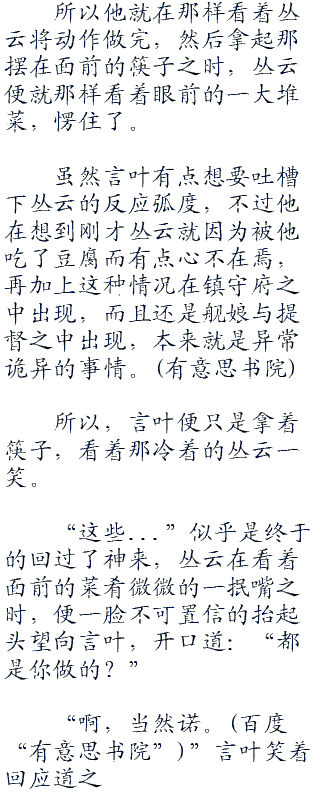 所以他就在那样看着丛
云将动作做完，然后拿起那
摆在面前的筷子之时，丛云
便就那样看着眼前的一大堆
菜，愣住了。
虽然言叶有点想要吐槽
下丛云的反应弧度，不过他
在想到刚才丛云就因为被他
吃了豆腐而有点心不在焉，
再加上这种情况在镇守府之
中出现，而且还是舰娘与提
督之中出现，本来就是异常
诡异的事情。(有意思书院)
所以，言叶便只是拿着
筷子，看着那冷着的丛云一
笑。
“这些...”似乎是终于
的回过了神来，丛云在看着
面前的菜肴微微的一抿嘴之
时，便一脸不可置信的抬起
头望向言叶，开口道：“都
是你做的？”
“啊，当然诺。(百度
“有意思书院”)”言叶笑着
回应道之